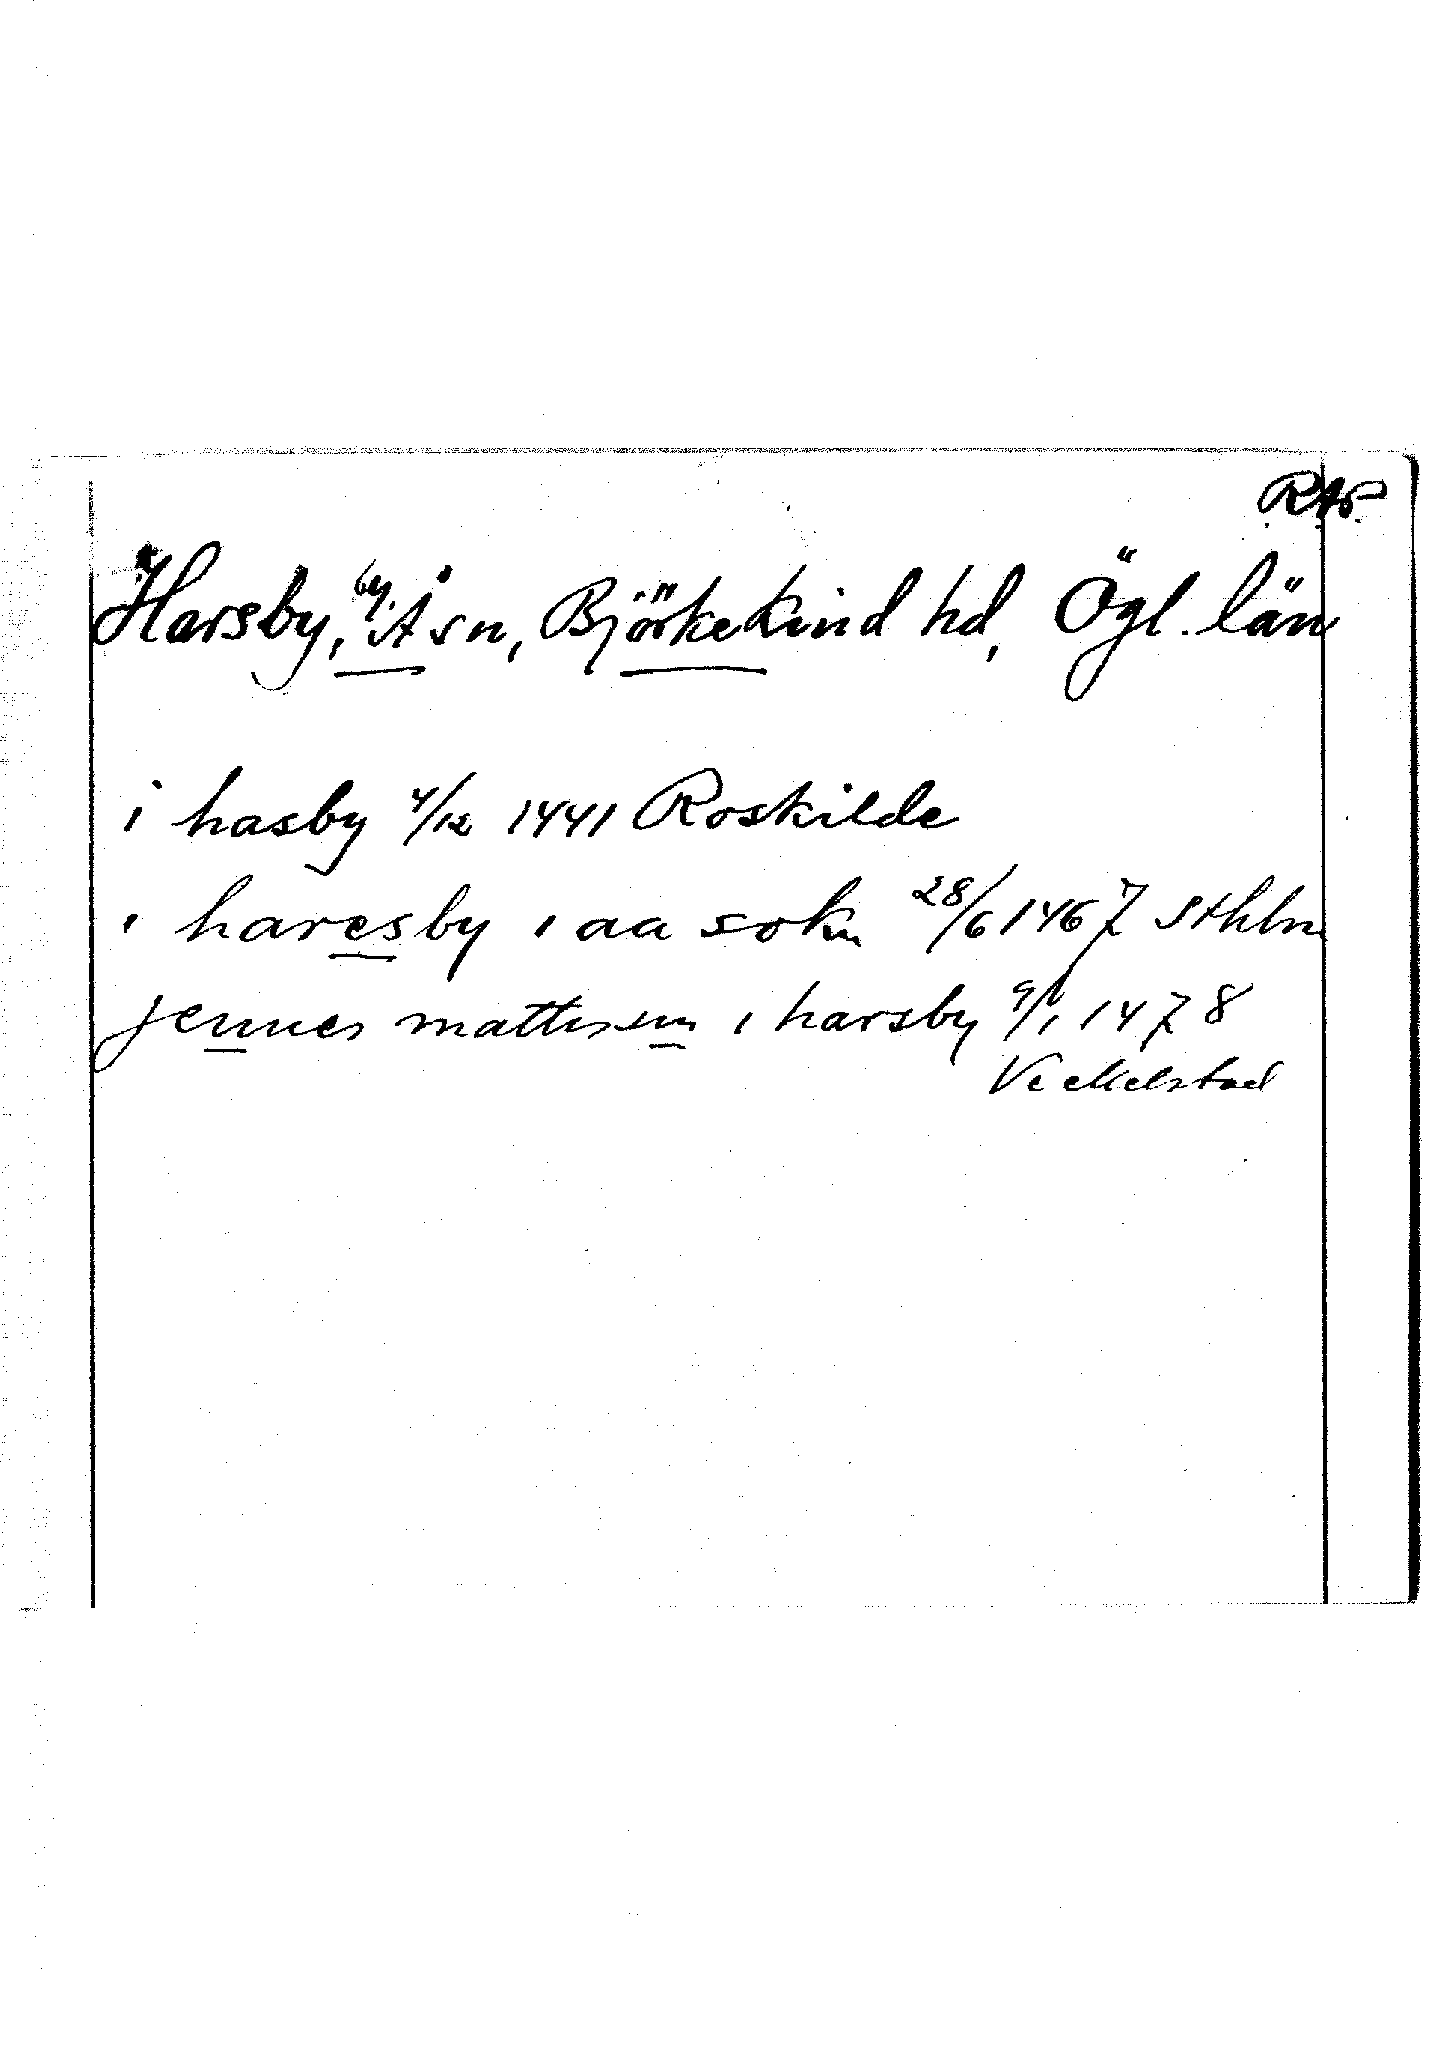 RAp.
Harsby, by, Å sn, Björkekind hd, Ögl. län
i hasby 4/12 1441 Roskilde
i haresby i aa sokn 28/6 1467 Sthlm
jennes mattisson i harsby 9/1 1478
Veckelstad